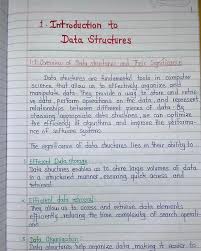 1. Introduction to
Data Structures
1.1 Overview of Data structures and Their Significance
Data structures are fundamental tools in computer
science that allow us to effectively organize and
manipulate data. They provide a way to store and retrie-
ve data, perform operations on the data, and represent
relationships between different pieces of data. By
choosing appropriate data structures, we can optimize
the efficiency of algorithms and improve the performa-
nce of software systems.
The significance of data structures lies in their ability to:
1. Efficient Data storage
Data structures enables us to store large volumes of data
in a structured manner, ensuring quick access and
retrieval.
2. Efficient data retrieval
They allow us to access and retrieve data elements
efficiently, reducing the time complexities of search operati-
ons.
3. Data Organization
Data structures help organize data, making it easier to